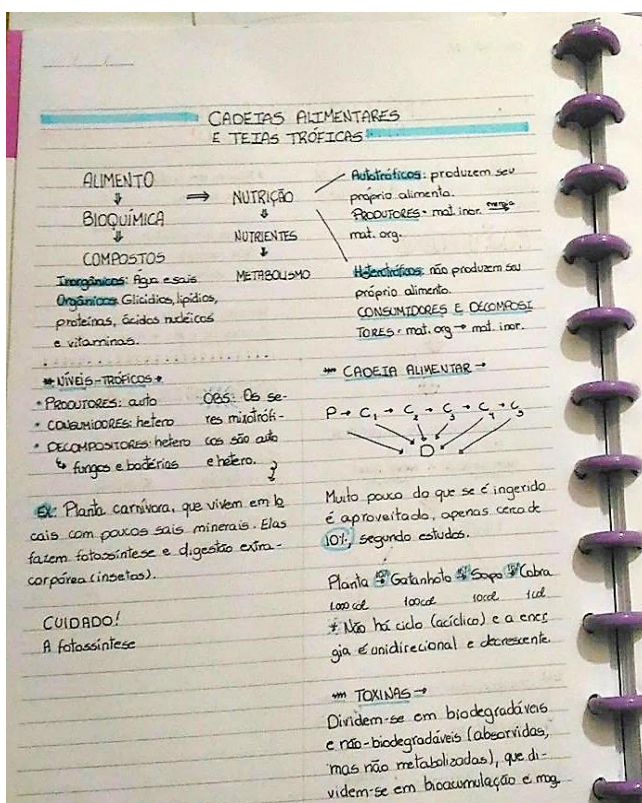 CADEIAS ALIMENTARES
E TEIAS TRÓFICAS
ALIMENTO
⇓
BIOQUÍMICA
⇓
COMPOSTOS
Inorgânicos: Água e sais
Orgânicos: Glicídios, lipídios,
proteínas, ácidos nucléicos
e vitaminas.
⇒ NUTRIÇÃO
⇓
NUTRIENTES
⇓
METABOLISMO
Autotróficos: produzem seu
próprio alimento.
PRODUTORES = mat. inor. energia→
mat. org.
Heterotróficos: não produzem seu
próprio alimento.
CONSUMIDORES E DECOMPOSI
TORES = mat. org → mat. inor.
NÍVEIS-TRÓFICOS
• PRODUTORES: auto
• CONSUMIDORES: hetero
• DECOMPOSITORES: hetero
↳ fungos e bactérias
OBS: Os se-
res mixotrófi-
cos são auto
e hetero.
EX: Planta carnívora, que vivem em lo
cais com poucos sais minerais. Elas
fazem fotossíntese e digestão extra-
corpórea (insetos).
CUIDADO!
A fotossíntese
CADEIA ALIMENTAR →
P → C1 → C2 → C3 → C4 → C5
D
Muito pouco do que se é ingerido
é aproveitado, apenas cerca de
10%, segundo estudos.
Planta 10% Gafanhoto 10% Sapo 10% Cobra
1.000 cal 100cal 10cal 1cal
* Não há ciclo (acíclico) e a ener
gia é unidirecional e decrescente.
TOXINAS →
Dividem-se em biodegradáveis
e não-biodegradáveis (absorvidas,
mas não metabolizadas), que di-
videm-se em bioacumulação e mag